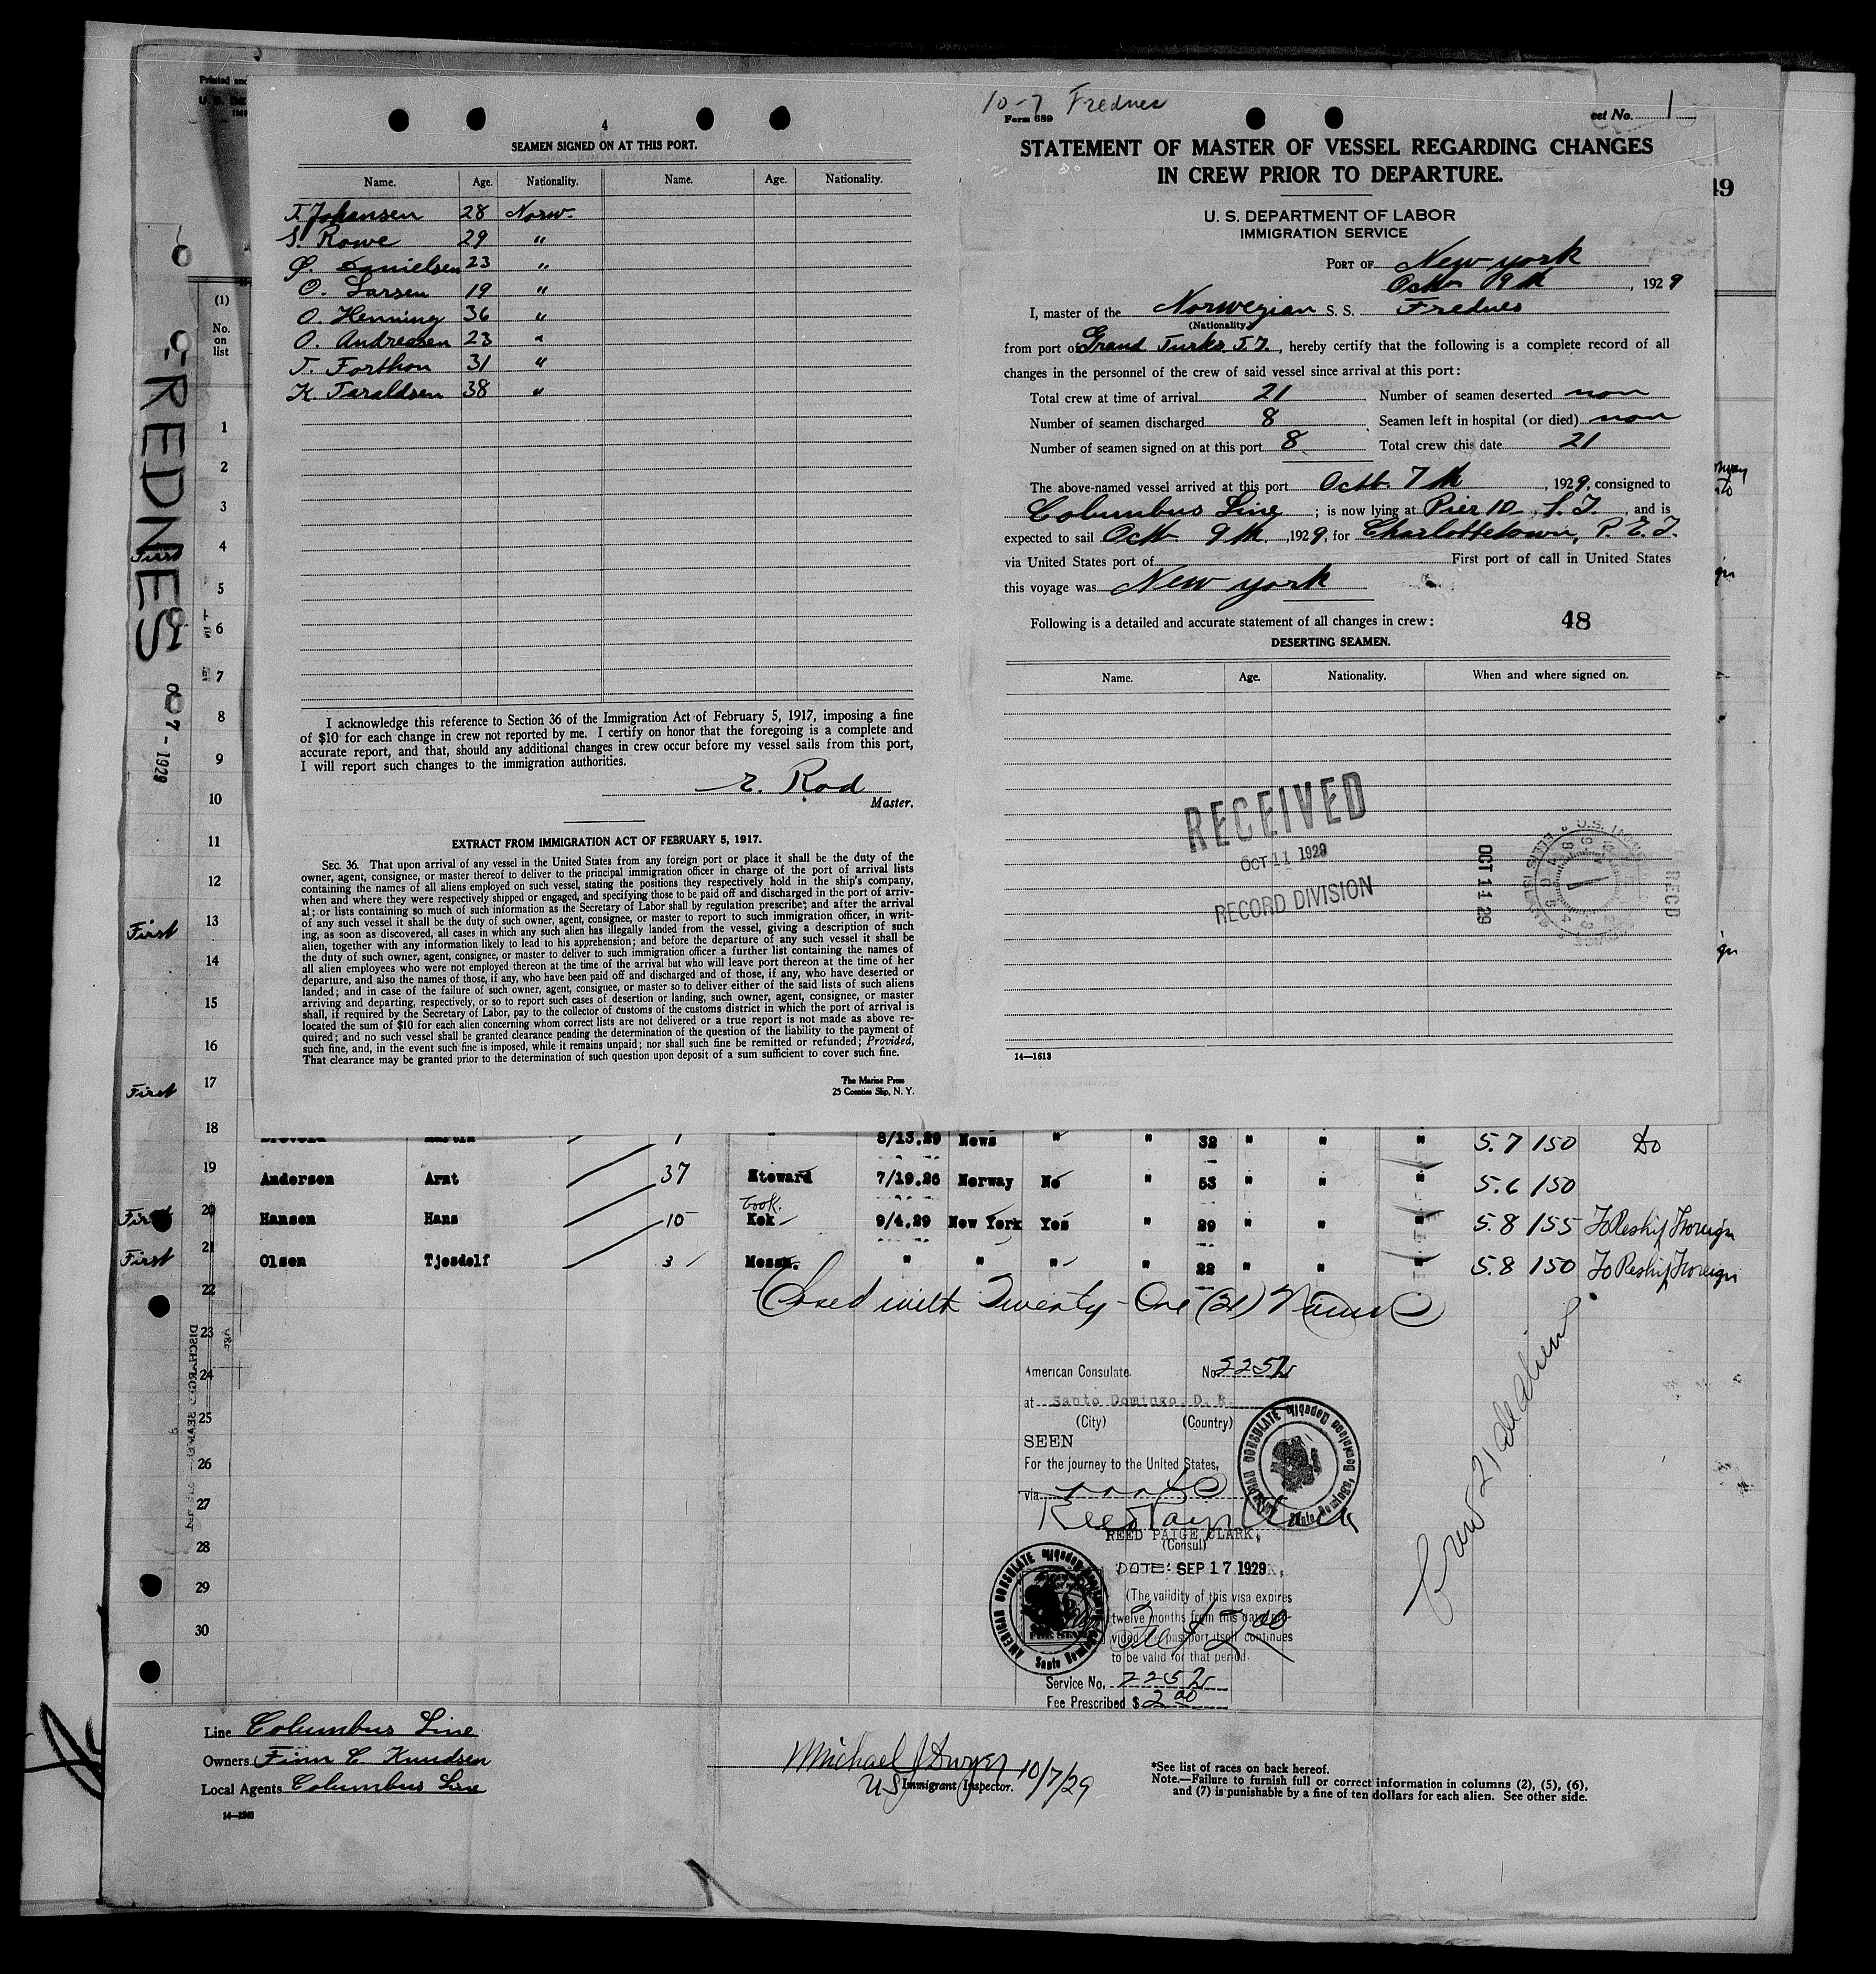 Printed and
6
FREDNES
OCT 7 - 1929
(1)
No.
on
list
1
2
3
4
5
6
7
8
9
10
11
12
13
14
15
16
17
First
First
First
4
SEAMEN SIGNED ON AT THIS PORT.
Name. Age. Nationality. Name. Age. Nationality.
T. Johansen 28 Norw.
S. Rowe 29 "
Danielsen 23 "
O. Larsen 19 "
O. Henning 36 "
O. Andreasen 23 "
T. Forthon 31 "
K. Taraldsen 38 "
I acknowledge this reference to Section 36 of the Immigration Act of February 5, 1917, imposing a fine
of $10 for each change in crew not reported by me. I certify on honor that the foregoing is a complete and
accurate report, and that, should any additional changes in crew occur before my vessel sails from this port,
I will report such changes to the immigration authorities.
E. Rod
Master.
EXTRACT FROM IMMIGRATION ACT OF FEBRUARY 5, 1917.
SEC. 36. That upon arrival of any vessel in the United States from any foreign port or place it shall be the duty of the
owner, agent, consignee, or master thereof to deliver to the principal immigration officer in charge of the port of arrival lists
containing the names of all aliens employed on such vessel, stating the positions they respectively hold in the ship's company,
when and where they were respectively shipped or engaged, and specifying those to be paid off and discharged in the port of arriv-
al; or lists containing so much of such information as the Secretary of Labor shall by regulation prescribe; and after the arrival
of any such vessel it shall be the duty of such owner, agent, consignee, or master to report to such immigration officer, in writ-
ing, as soon as discovered, all cases in which any such alien has illegally landed from the vessel, giving a description of such
alien, together with any information likely to lead to his apprehension; and before the departure of any such vessel it shall be
the duty of such owner, agent, consignee, or master to deliver to such immigration officer a further list containing the names of
all alien employees who were not employed thereon at the time of the arrival but who will leave port thereon at the time of her
departure, and also the names of those, if any, who have been paid off and discharged and of those, if any, who have deserted or
landed; and in case of the failure of such owner, agent, consignee, or master so to deliver either of the said lists of such aliens
arriving and departing, respectively, or so to report such cases of desertion or landing, such owner, agent, consignee, or master
shall, if required by the Secretary of Labor, pay to the collector of customs of the customs district in which the port of arrival is
located the sum of $10 for each alien concerning whom correct lists are not delivered or a true report is not made as above re-
quired; and no such vessel shall be granted clearance pending the determination of the question of the liability to the payment of
such fine, and, in the event such fine is imposed, while it remains unpaid; nor shall such fine be remitted or refunded; Provided,
That clearance may be granted prior to the determination of such question upon deposit of a sum sufficient to cover such fine.
The Marine Press
25 Coenties Slip, N. Y.
10-7 Frednes
Form 689
eet No. 1
STATEMENT OF MASTER OF VESSEL REGARDING CHANGES
IN CREW PRIOR TO DEPARTURE.
49
U. S. DEPARTMENT OF LABOR
IMMIGRATION SERVICE
PORT OF New york
Octb 9th, 1929
I, master of the Norwegian S. S. Frednes
(Nationality)
from port of Grand Turks. T.I., hereby certify that the following is a complete record of all
changes in the personnel of the crew of said vessel since arrival at this port:
Total crew at time of arrival 21 Number of seamen deserted non
Number of seamen discharged 8 Seamen left in hospital (or died) non
Number of seamen signed on at this port 8 Total crew this date 21
The above-named vessel arrived at this port Octb. 7th, 1929, consigned to
Columbus Line; is now lying at Pier 10 S. I., and is
expected to sail Octb 9th, 1929, for Charlottetown, P. E. I.
via United States port of First port of call in United States
this voyage was New york
Following is a detailed and accurate statement of all changes in crew: 48
DESERTING SEAMEN.
Name. Age. Nationality. When and where signed on.
RECEIVED
OCT 11 1929
RECORD DIVISION
OCT 11 29
REC'D
14—1613
18 Martin 1 " 8/13.29 News " " 32 " " " 5.7 150 Do
19 Andersen Arnt 37 Steward 7/19.26 Norway No " 53 " " " 5.6 150
Cook.
First 20 Hansen Hans 10 Kok 9/4.29 New York Yes " 29 " " " 5.8 155 To Reship Foreign
First 21 Olsen Tjosdolf 3 Messm. " " " " 22 " " " 5.8 150 To Reship Foreign
22 Closed with Twenty-One (21) Names
23
24
25
26
27
28
29
30
American Consulate No. 2252
at Santo Domingo, D. R.
(City) (Country)
SEEN
For the journey to the United States,
via
Reed Paige Clark
REED PAIGE CLARK,
(Consul)
DATE: SEP 17 1929
(The validity of this visa expires
twelve months from this date pro-
vided the passport itself continues
to be valid for that period.
Service No. 2252
Fee Prescribed $ 2.00
AMERICAN CONSULATE Santo Domingo, Dominican Republic
AMERICAN CONSULATE Santo Domingo, Dominican Republic
Crew 21 all alien
Line Columbus Line
Owners Finn C Knudsen
Local Agents Columbus Line
14—1240
Michael J Dwyer 10/7/29
US Immigrant Inspector.
*See list of races on back hereof.
Note.—Failure to furnish full or correct information in columns (2), (5), (6),
and (7) is punishable by a fine of ten dollars for each alien. See other side.